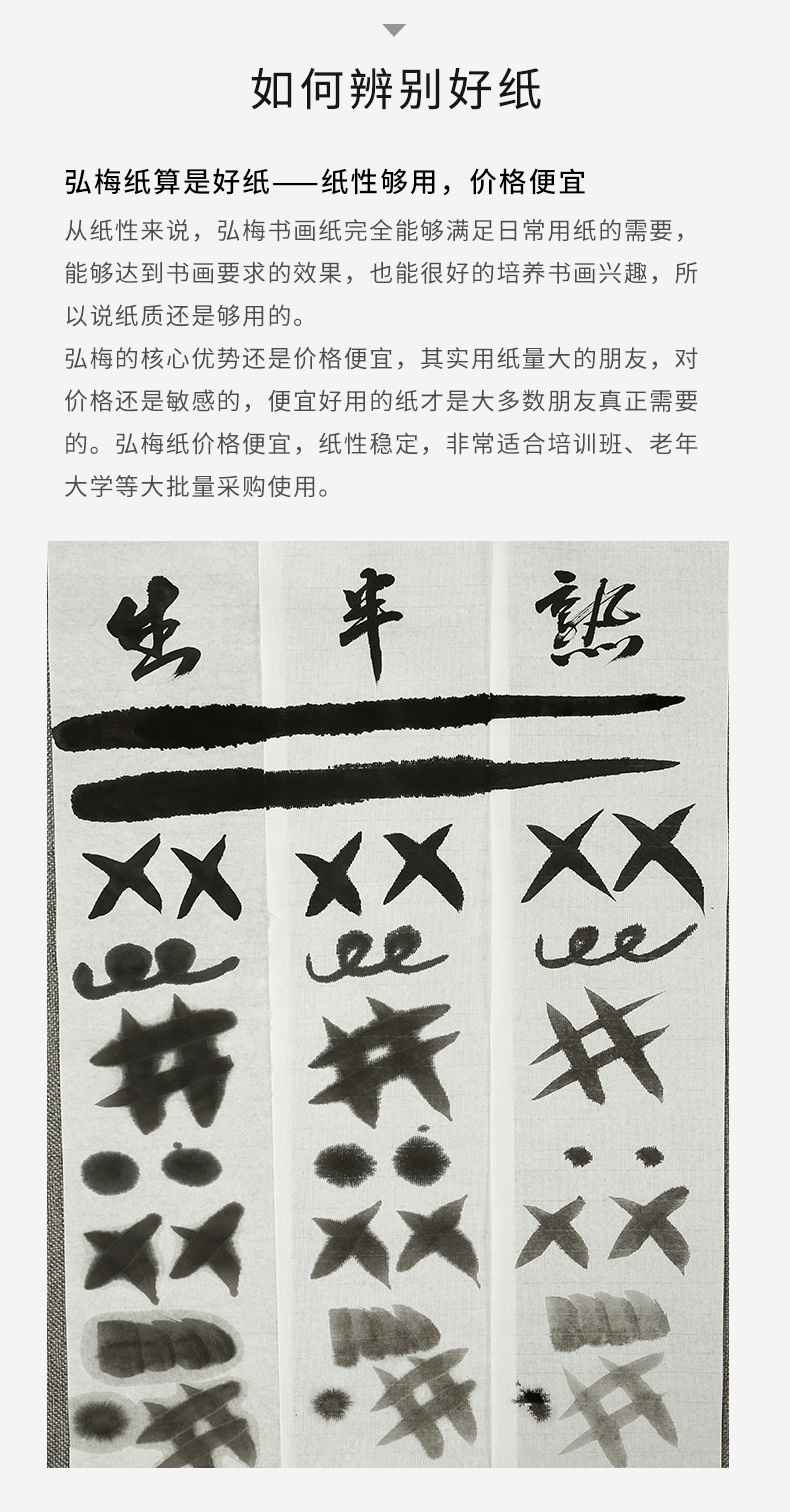 如何辨别好纸
弘梅纸算是好纸——纸性够用，价格便宜
从纸性来说，弘梅书画纸完全能够满足日常用纸的需要，
能够达到书画要求的效果，也能很好的培养书画兴趣，所
以说纸质还是够用的。
弘梅的核心优势还是价格便宜，其实用纸量大的朋友，对
价格还是敏感的，便宜好用的纸才是大多数朋友真正需要
的。弘梅纸价格便宜，纸性稳定，非常适合培训班、老年
大学等大批量采购使用。
生 半 熟